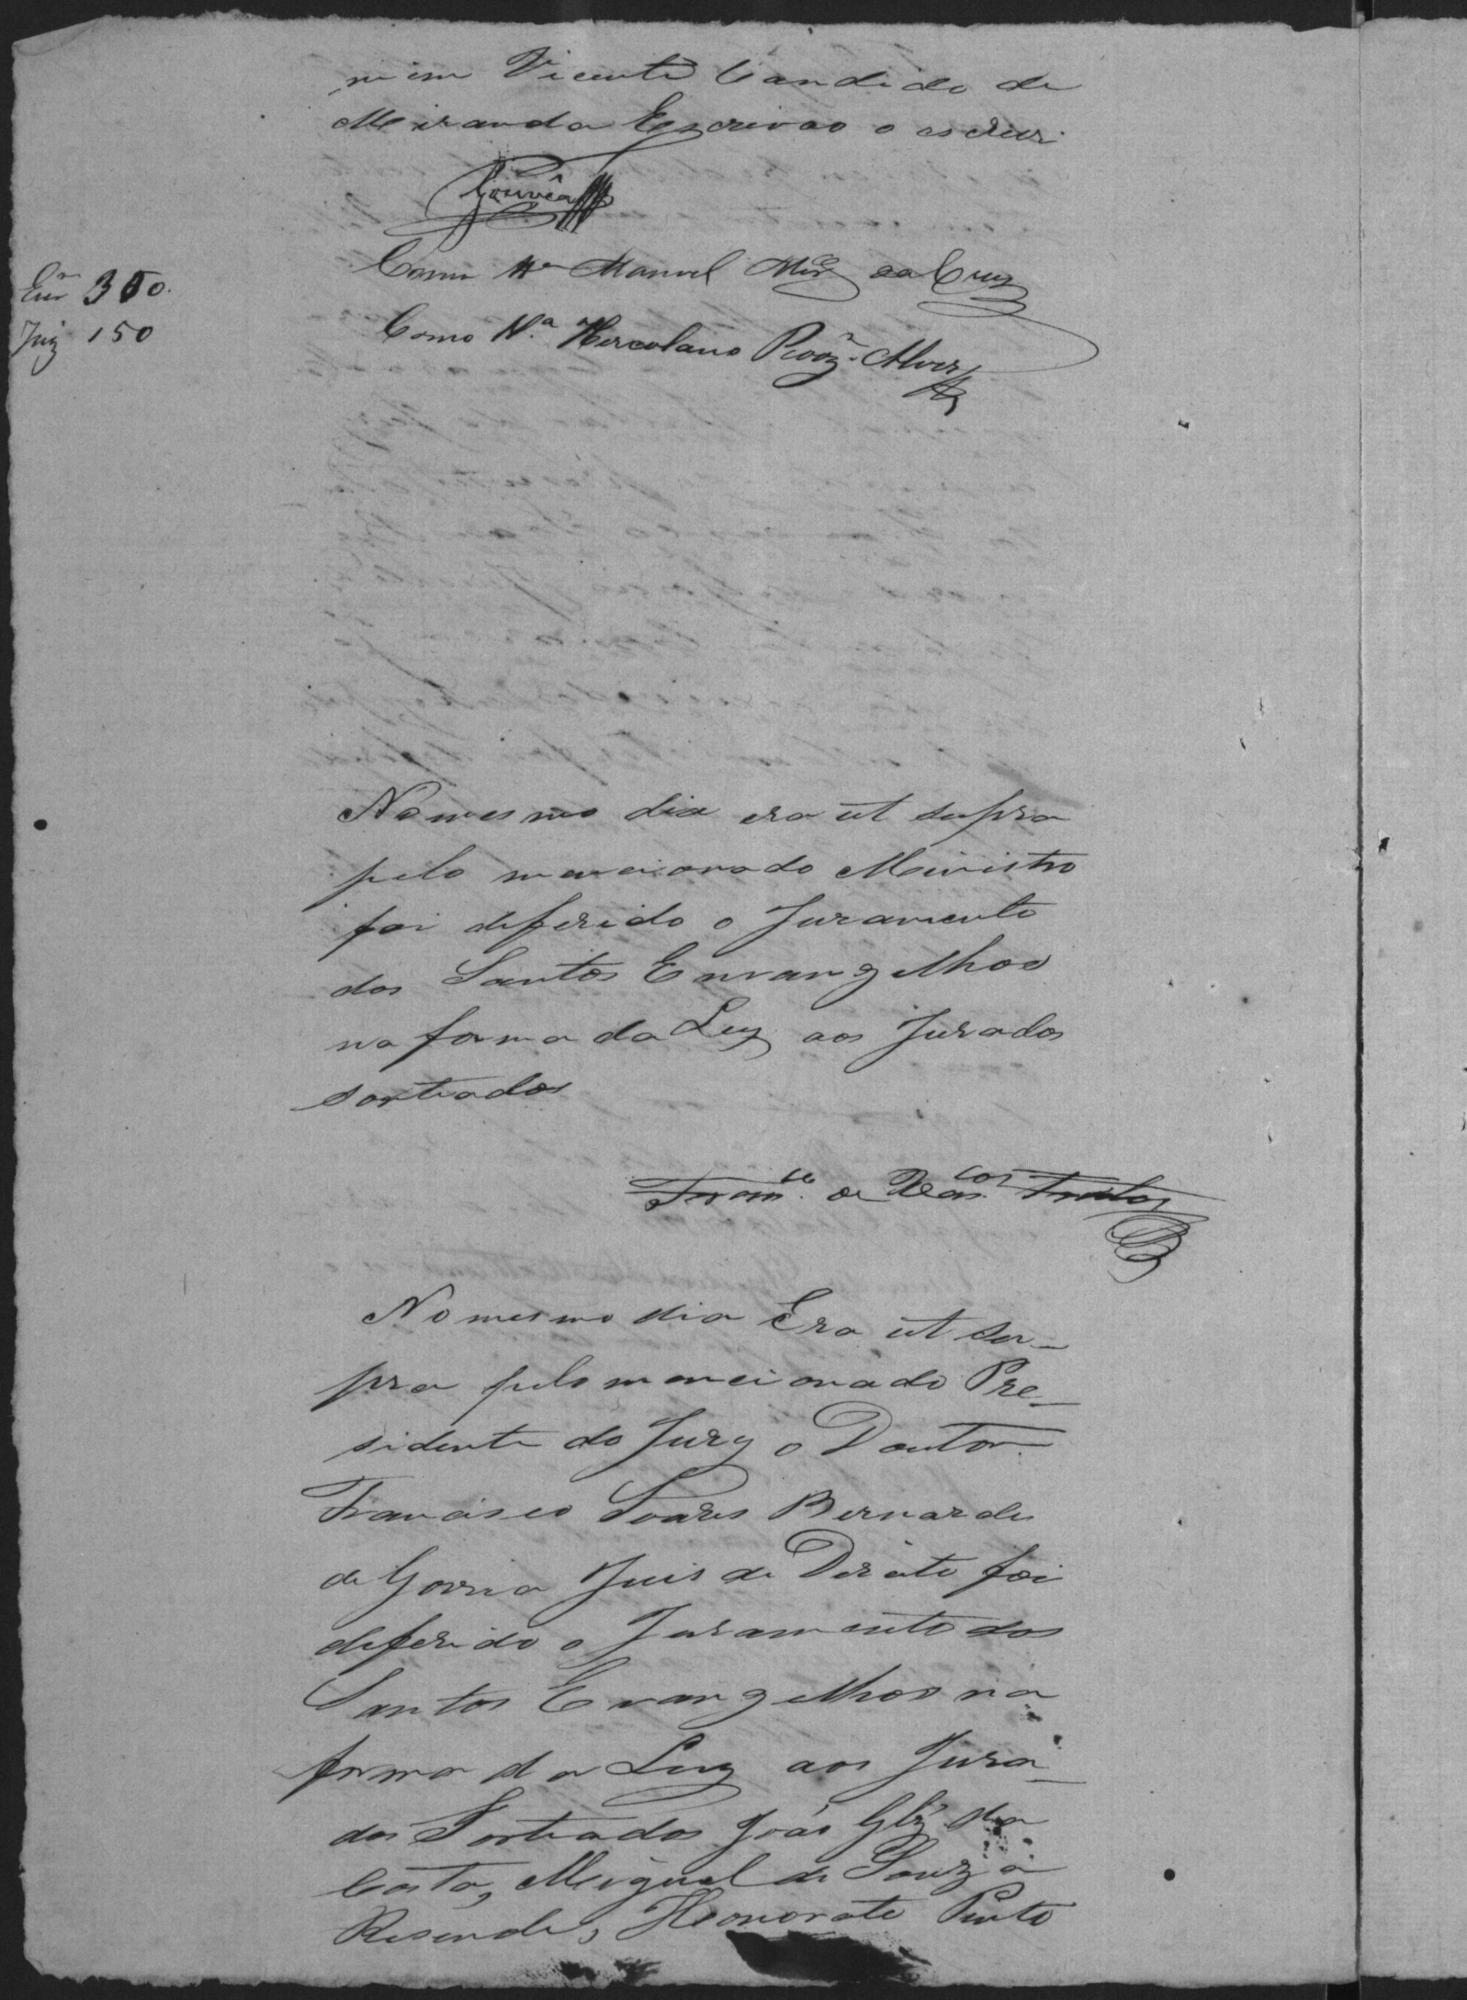 mim Vicente Candido de
Miranda Escrivao o escrevi
Gouvêa
Como Manoel da Cruz
Como Hercolano Alves
Juiz 150
No mesmo dia era ut supra
pelo mencionado Ministro
foi deferido o Juramento
dos Santos Envangelhos
na forma da Ley aos Jurados
sortiados
de
No mesmo dia Era ut su-
pra pelo mencionado Pre-
sidente do Jury o Doutor
Francisco Soares Bernardes
de Juis de Direito foi
deferido o Juramento dos
Santos Evangelhos na
forma da Ley aos Jura-
dos Sortiados João Glz da
Costa, Miguel de Souza
Resende, Honorato Pinto